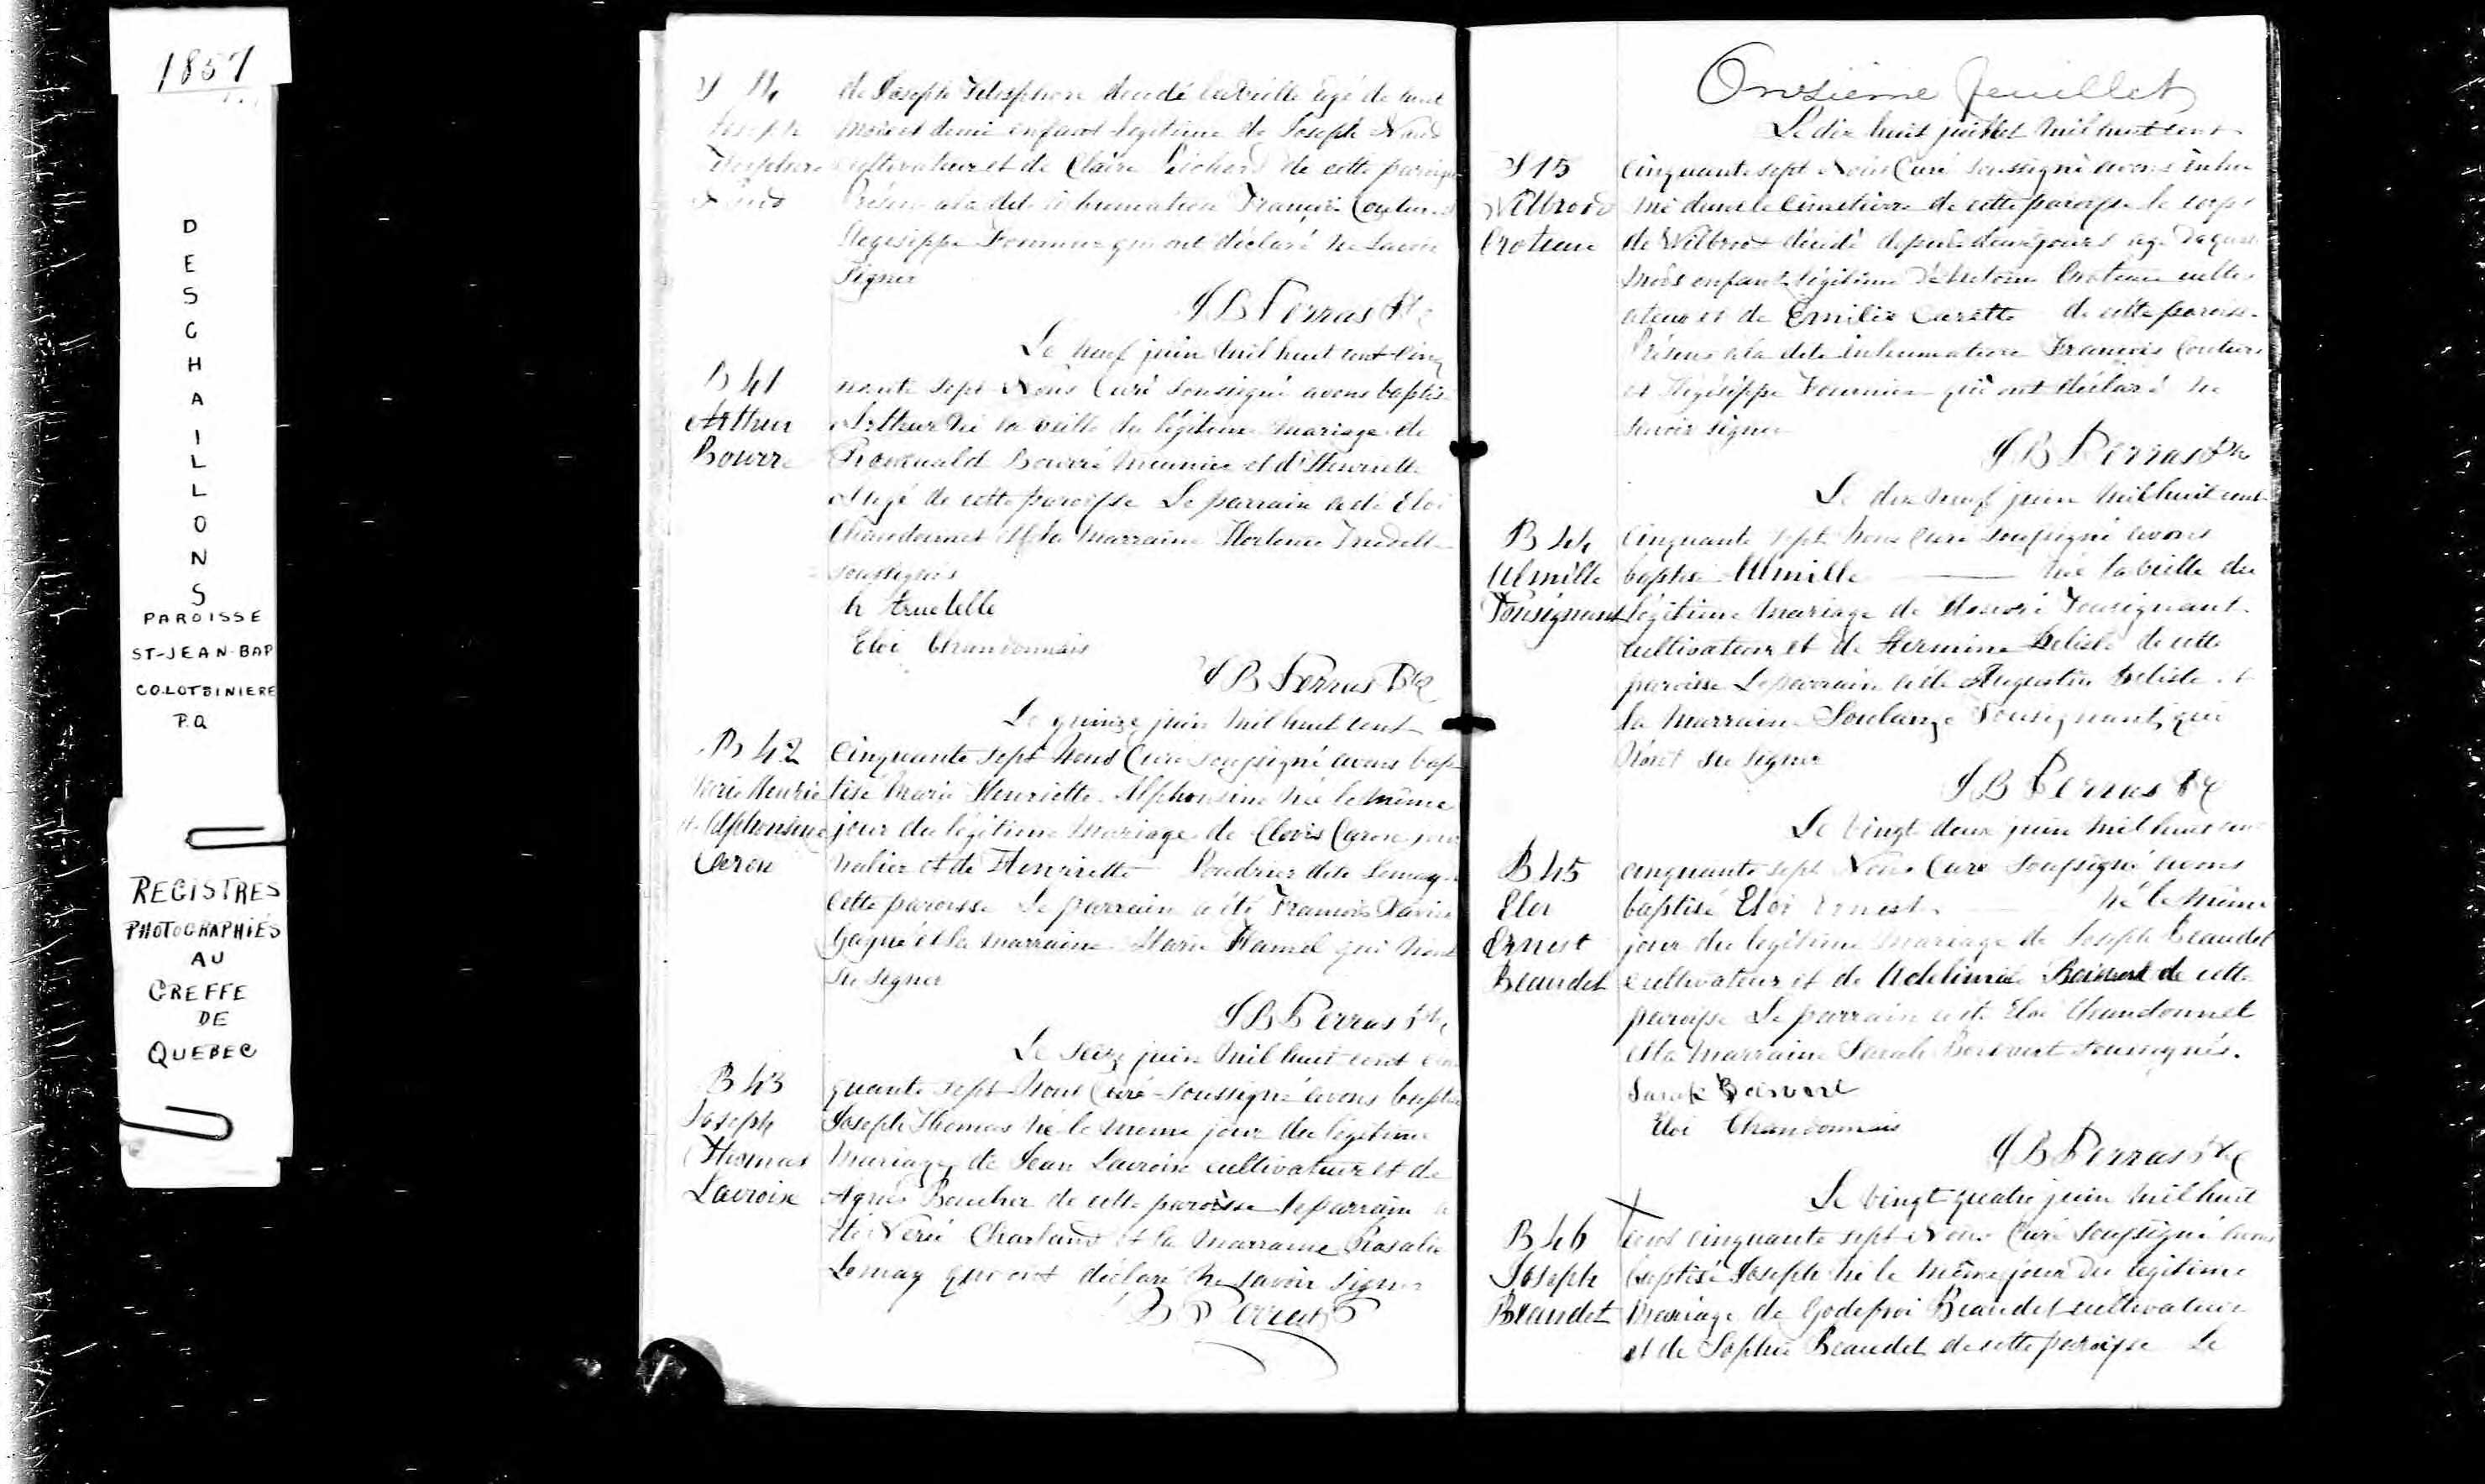 1857
D
E
S
C
H
A
I
L
L
O
N
S
PAROISSE
ST-JEAN-BAP
CO.LOTBINIERE
P.Q
REGISTRES
PHOTOGRAPHIÉS
AU
GREFFE
DE
QUEBEC
S
de Joseph Telesphore décédé la veille agé de
Joseph mois et demi enfant légitime de Joseph
cultivateur et de Claire de cette paroisse
Présens a la dite inhumation François Couture et
Hegesippe Fournier qui ont déclaré ne savoir
signer
J B Perras Ptre
Le neuf juin mil huit cent cinq
B 41 uante sept Nous Curé soussigné avons baptisé
Arthur Arthur né la veille du légitime mariage de
Bourré Romuald Bourré meunier et d'Henriette
de cette paroisse Le parrain a été Eloi
Chandonnet et la marraine Hortence Trudelle
soussignés
h trudelle
Eloi Chandonnais
J B Perras Ptre
Le quinze juin mil huit cent
B 42 cinquante sept Nous Curé soussigné avons bap
Marie Henrie tisé Marie Henriette Alphonsine née le même
tte Alphonsine jour du légitime mariage de Clovis Caron jour
Caron nalier et de Henriette Poudrier dite Lemay
cette paroisse Le parrain a été François Xavier
Gagné et la marraine Marie Hamel qui n'ont
su signer
J B Perras Ptre
Le seize juin mil huit cent cin
B 43 quante sept Nous Curé soussigné avons baptisé
Joseph Joseph Thomas né le meme jour du légitime
Thomas mariage de Jean Lavroix cultivateur et de
Lavroix Agnès Boucher de cette paroisse le parrain a
été Neré Charland et la marraine Rosalie
Lemay qui ont déclaré ne savoir signer
J B Perras P
Onzième feuillet
Le dix huit juillet mil huit cent
S 15 cinquante sept Nous Curé soussigné avons inhu
Wilbrod mé dans le cimetière de cette paroisse le corps
Croteau de Wilbrod décédé depuis deux jours agé de
mois enfant légitime d'Antoine Croteau cultiv
ateur et de Emilie Carette de cette paroisse
Présens a la dite inhumation François Couture
et Hégésippe Fournier qui ont déclaré ne
savoir signer
J B Perras Ptre
Le dix neuf juin mil huit cent
B 44 cinquante sept Nous Curé soussigné avons
Ulmille baptisé Ulmille née la veille du
Tousignant légitime mariage de Honoré Tousignant
cultivateur et de Hermine Delisle de cette
paroisse Le parrain a été Augustin Delisle et
la marraine Soulange Tousignant qui
n'ont su signer
J B Perras Ptre
Le vingt deux juin mil huit cent
B 45 cinquante sept Nous Curé soussigné avons
Eloi baptisé Eloi Ernest né le même
Ernest jour du légitime mariage de Joseph Beaudet
Beaudet cultivateur et de Adelimie Boisvert de cette
paroisse Le parrain a été Eloi Chandonnet
et la marraine Sarah Boisvert soussignés.
Sarah Boisvert
Eloi Chandonnais
J B Perras Ptre
Le vingt quatre juin mil huit
B 46 cent cinquante sept Nous Curé soussigné avons
Joseph baptisé Joseph né le même jour du légitime
Beaudet mariage de Godefroi Beaudet cultivateur
et de Sophie Beaudet de cette paroisse Le